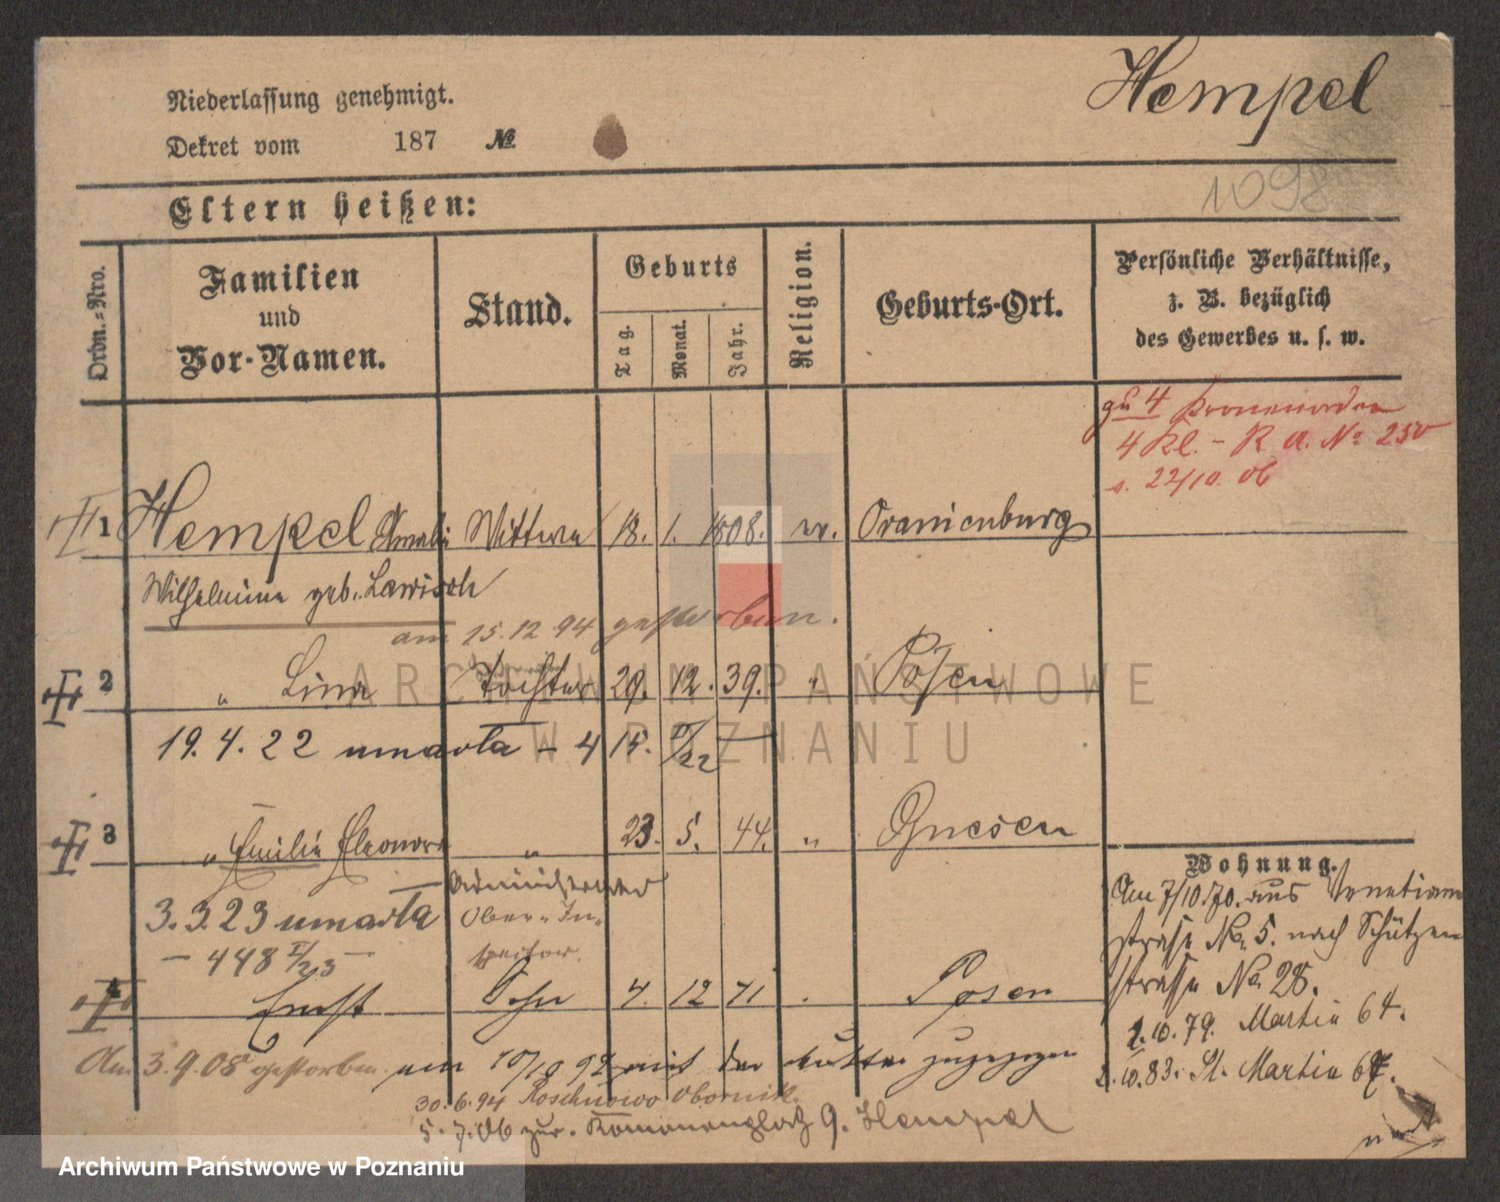 Hempel
Niederlassung genehmigt.
Dekret vom 187 №
1098
Eltern heißen:
Ordn.-Nro.
Familien
und
Vor-Namen.
Stand.
Geburts
Tag.
Monat.
Jahr.
Religion.
Geburts-Ort.
Persönliche Verhältnisse,
z. B. bezüglich
des Gewerbes u. s. w.
4 Kronenorden
4 Kl. - R A. No 250
22/10. 06
1 Hempel Amalie Wittwe 18. 1. 1808. ev. Oranienburg
Wilhelmine geb. Lawisch
am 15.12 94 gestorben.
2 " Lina Tochter 29. 12. 39. " Posen
19. 4. 22 umarła - 4 15. IV/22
3 " Emilie Eleonore " 23. 5. 44. " Gnesen
3. 3. 23 umarła
- 448 I/23 -
Ober-In-
4 Ernst Sohn 4. 12 41 Posen
Am 3.9.08 gestorben am 10/10 92 mit der Mutter zugezogen
30.6.94 Roschnowo Obornik.
5. 7. 06 zur. 9. Hempel
Wohnung.
Am 7/10.70. aus Venetianer
straße No. 5. nach Schützen
straße No. 28.
2.10.79. Martin 64.
2.10.83. St. Martin 67.
ARCHIWUM PAŃSTWOWE
W POZNANIU
Archiwum Państwowe w Poznaniu